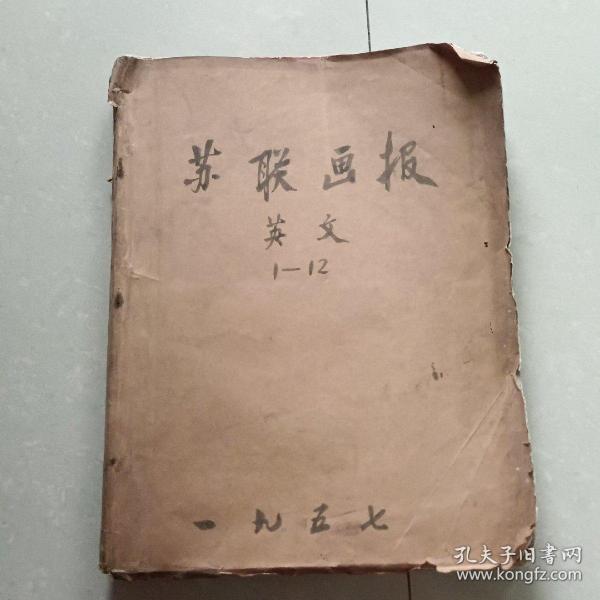 苏联画报
英文
1-12
一九五七
孔夫子旧书网
www.kongfz.com